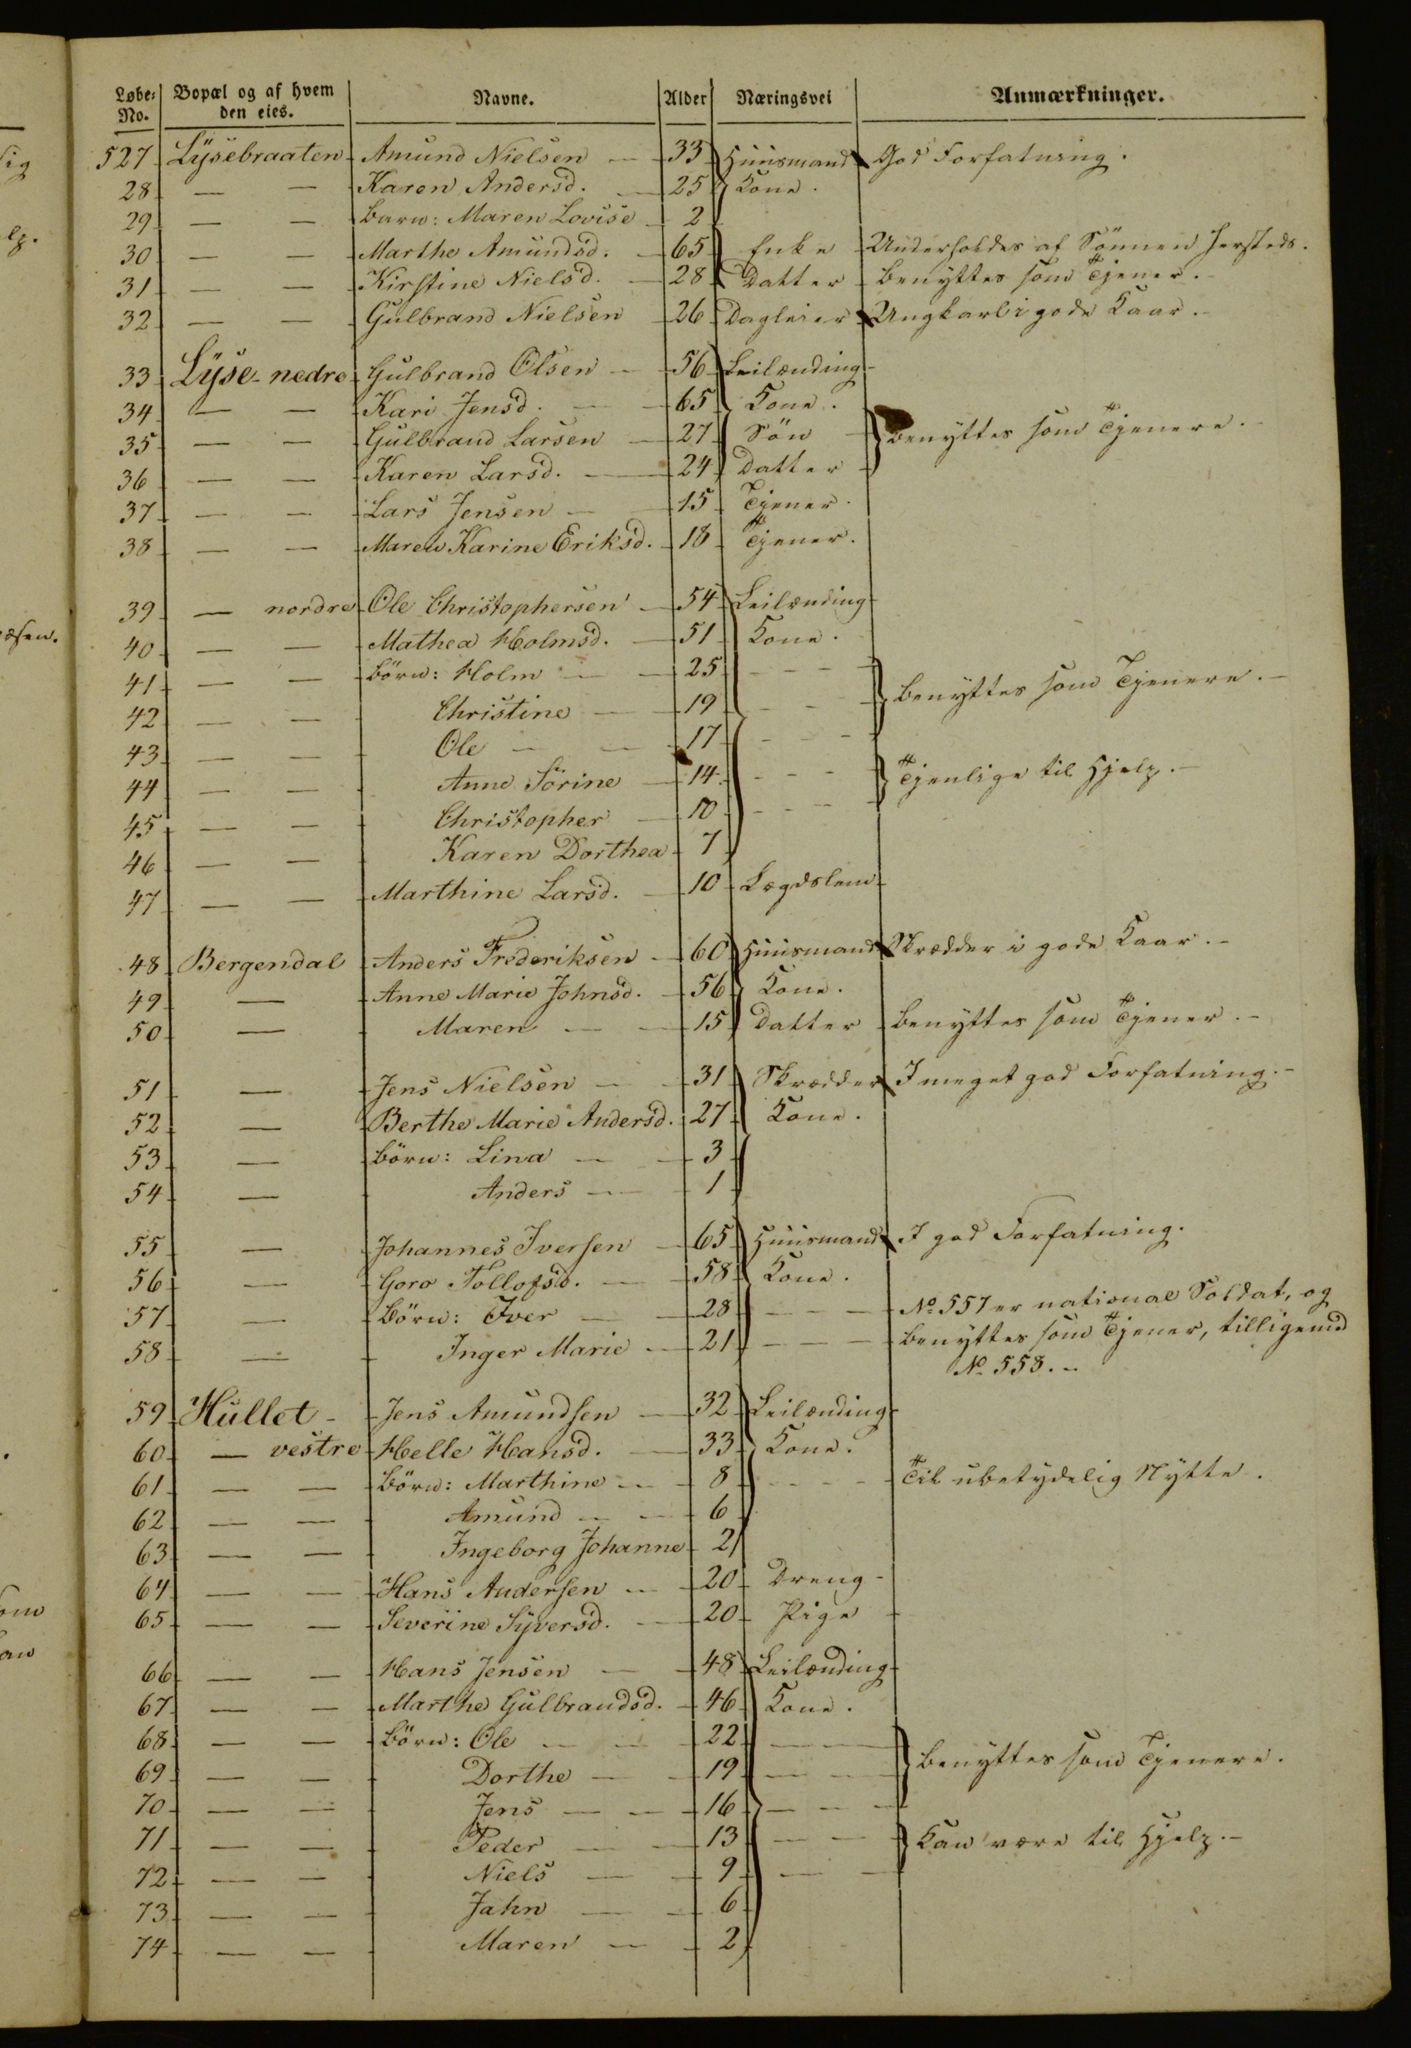 Løbe- No. Bopæl og af hvem den eies. Navne. Alder Næringsvei Anmærkninger.
527 Lÿsebraaten Amund Nielsen — 33 Huusmand God Forfatning.
28 — — Karen Andersd. — 25 Kone.
29 — — Barn: Maren Lovise 2
30 — — Marthe Amundsd. 65 Enke Underholdes af Sönnen hersteds.
31 — — Kirstine Nielsd. — 28 Datter benyttes som Tjener.
32 — — Gulbrand Nielsen 26 Dagleier Ungkarl i gode Kaar.
33 Lÿse nedre Gulbrand Olsen — 56 Leilænding
34 — — Kari Jensd. — 65 Kone.
35 — — Gulbrand Larsen — 27 Sön benyttes som Tjenere.
36 — — Karen Larsd. — 24 Datter
37 — — Lars Jensen — 15 Tjener.
38 — — Maren Karine Eriksd. 18 Tjener.
39 — nordre Ole Christophersen — 54 Leilænding
40 — — Mathea Holmsd. — 51 Kone.
41 — — börn: Holm — — 25 - - - benyttes som Tjenere. —
42 — — Christine — 19 - - -
43 — — Ole — — 17 - - -
44 — — Anne Sörine — 14 - - - Tjenlige til Hjelp. —
45 — — Christopher — 10 - - -
46 — — Karen Dorthea 7
47 — — Marthine Larsd. — 10 Lægdslem
48 Bergendal Anders Frederiksen — 60 Huusmand Skrædder i gode Kaar. —
49 — Anne Marie Johnsd. — 56 Kone.
50 — Maren — — 15 Datter benyttes som Tjener. —
51 — Jens Nielsen — 31 Skrædder I meget god Forfatning. —
52 — Berthe Marie Andersd. 27 Kone.
53 — börn: Lina — — 3
54 — Anders — 1
55 — Johannes Iversen — 65 Huusmand I god Forfatning.
56 — Goro Tollofsd. — 58 Kone.
57 — börn: Iver — — 28 — — — No 557 er national Soldat, og
58 — Inger Marie — 21 — — — benyttes som Tjener, tilligemed
No 558. —
59 Hullet — Jens Amundsen — 32 Leilænding
60 — vestre Helle Hansd. — 33 Kone.
61 — — börn: Marthine — 8 - - - Til ubetydelig Nytte.
62 — — Amund — — 6
63 — — Ingeborg Johanne 2
64 — — Hans Andersen — 20 Dreng
65 — — Severine Syversd. — 20 Pige
66 — — Hans Jensen — 48 Leilænding
67 — — Marthe Gulbrandsd. — 46 Kone.
68 — — börn: Ole — — 22 — — benyttes som Tjenere.
69 — — Dorthe — 19 — —
70 — — Jens — — 16 — — —
71 — — Peder — — 13 — — Kan være til Hjelp. —
72 — — Niels — — 9 — —
73 — — Jahn — — 6
74 — — Maren — — 2